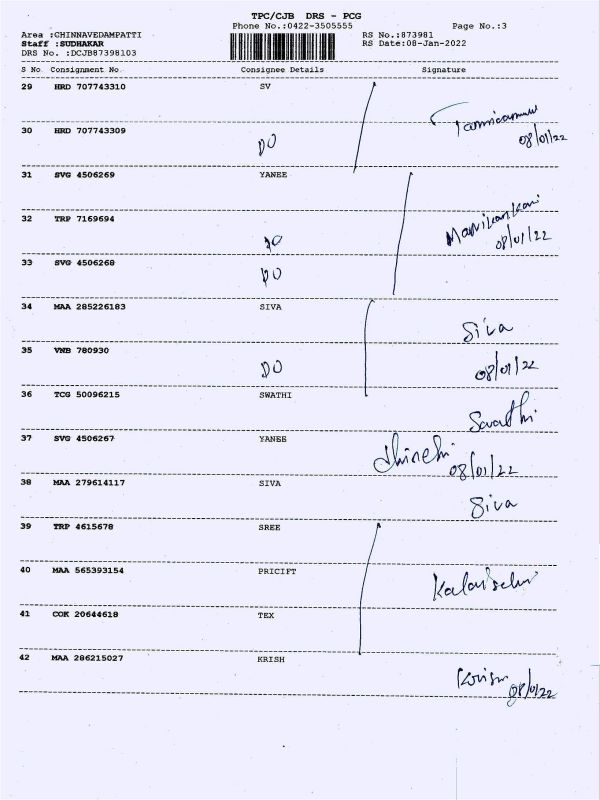 TPC/CJB DRS - PCG
Phone No.:0422-3505555 Page No.:3
Area :CHINNAVEDAMPATTI RS No.:873981
Staff :SUDHAKAR RS Date:08-Jan-2022
DRS No. :DCJB87398103
S No Consignment No Consignee Details Signature
29 HRD 707743310 SV
30 HRD 707743309 DO 08/01/22
31 SVG 4506269 YANEE
32 TRP 7169694 DO Manikandan 08/01/22
33 SVG 4506268 DO
34 MAA 285226183 SIVA Siva
35 VNB 780930 DO 08/01/22
36 TCG 50096215 SWATHI Swathi
37 SVG 4506267 YANEE 08/01/22
38 MAA 279614117 SIVA Siva
39 TRP 4615678 SREE
40 MAA 565393154 PRICIFT Kalaiselvi
41 COK 20644618 TEX
42 MAA 286215027 KRISH Krish 08/01/22